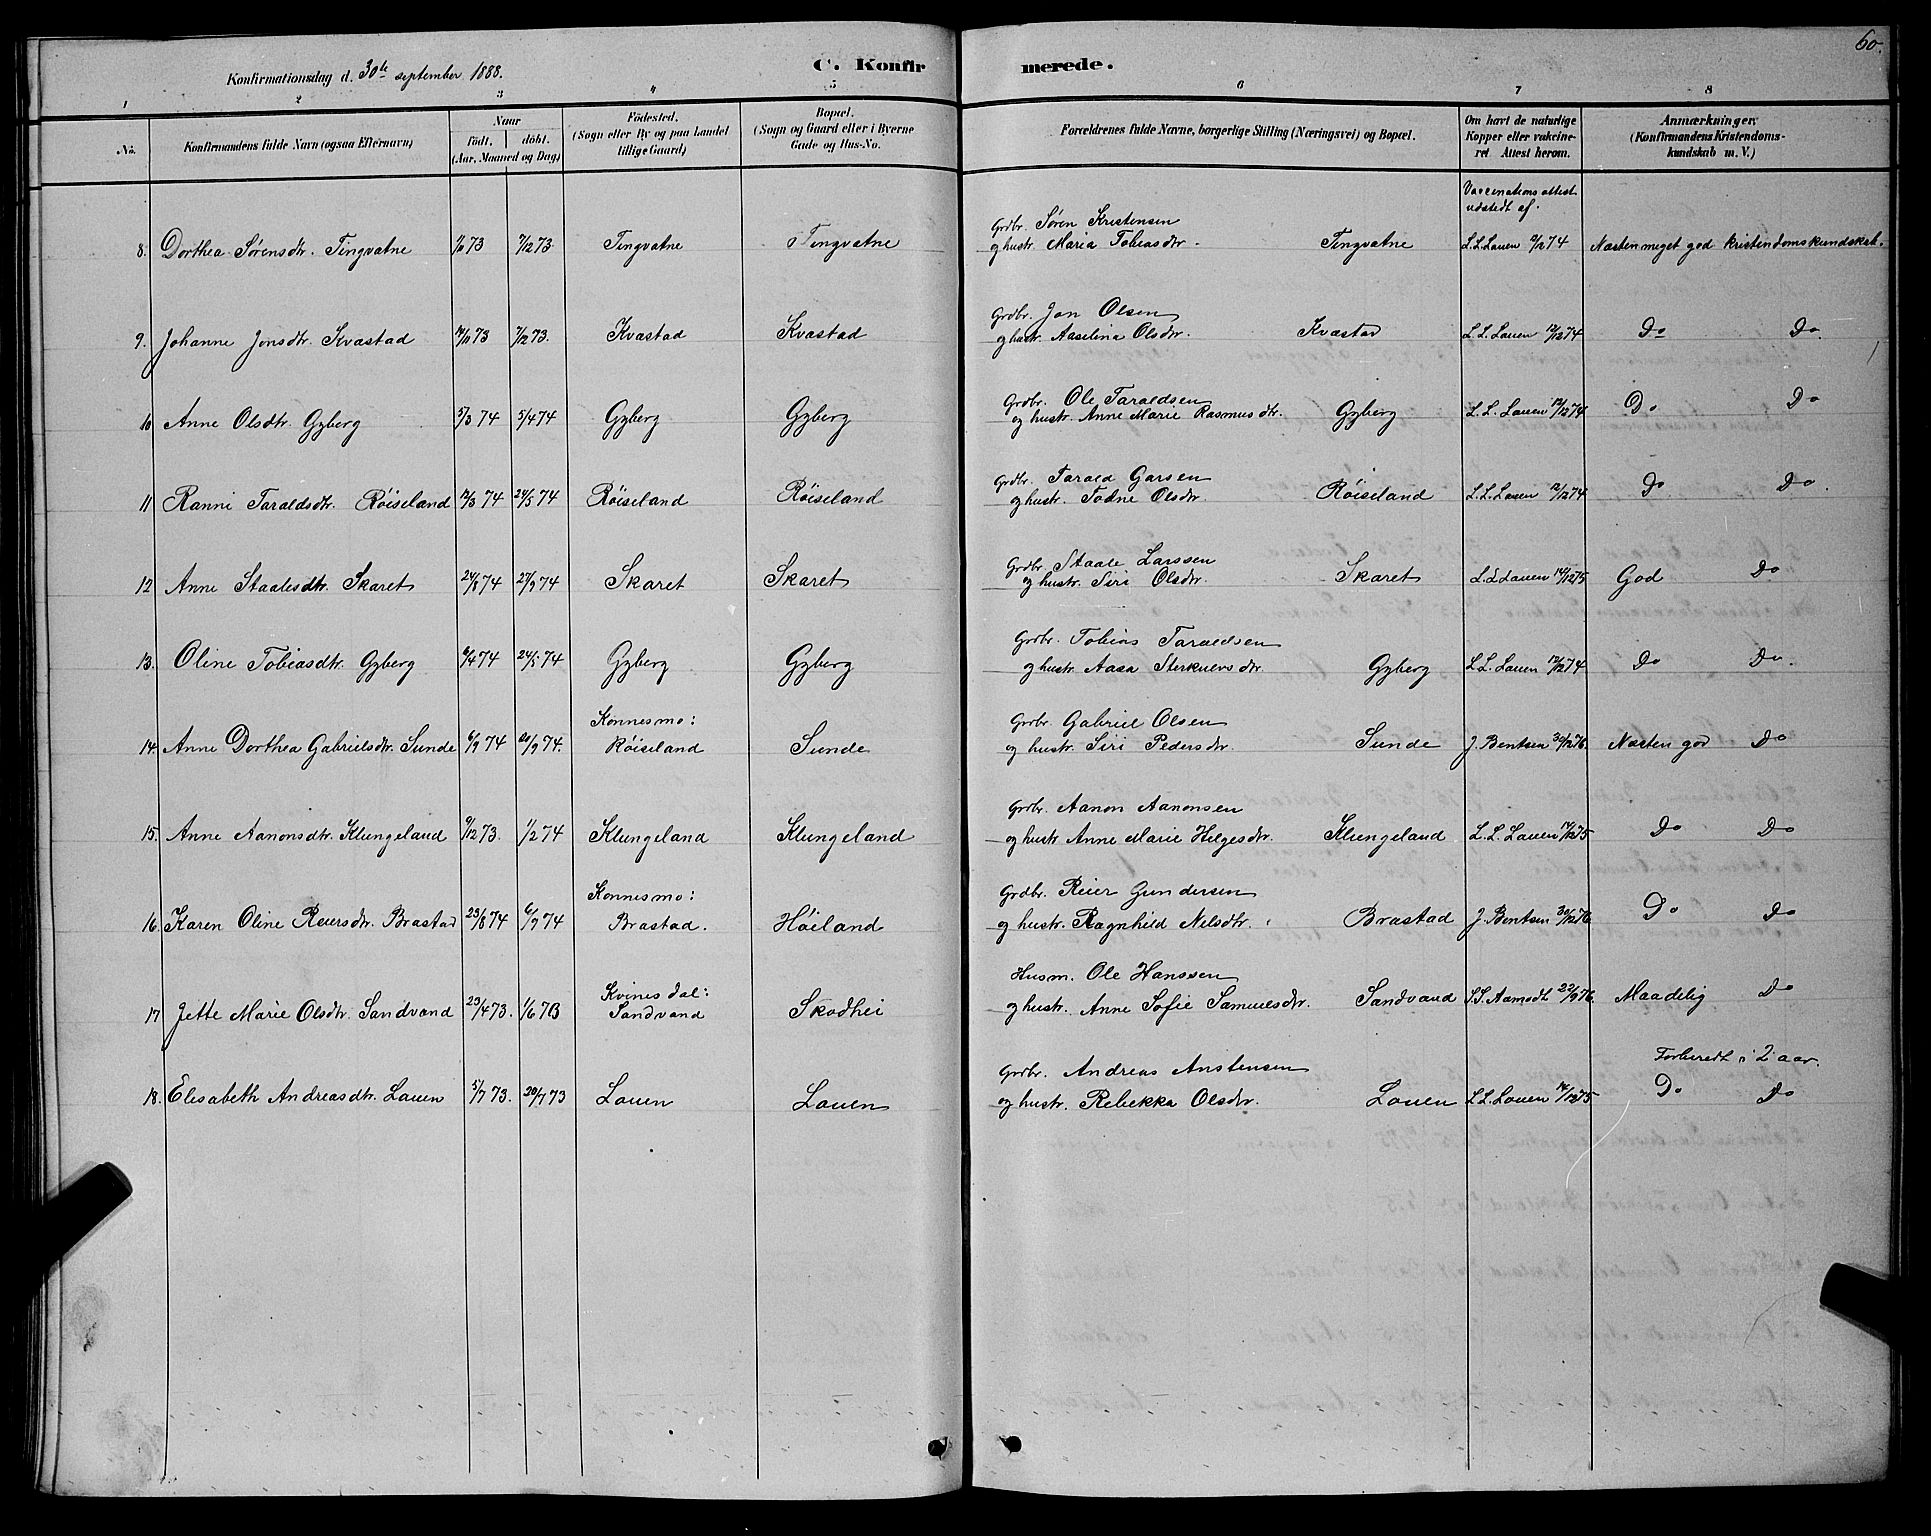 60.
Konfirmationsdag d. 30te september 1888.
C. Konfirmerede.
1 2 3 4 5 6 7 8
No. Konfirmandens fulde Navn (ogsaa Efternavn) Naar födt, döbt. (Aar, Maaned og Dag) Födested. (Sogn eller By og paa Landet tillige Gaard) Bopæl. (Sogn og Gaard eller i Byerne Gade og Hus-No. Forældrenes fulde Navne, borgerlige Stilling (Næringsvei) og Bopæl. Om havt de naturlige Kopper eller vakcineret Attest herom. Anmærkninger. (Konfirmandens Kristendomskundskab m. V.)
Vaccinations attest udstedt af.
Grdbr. Søren Kristensen
8. Dorthea Sørensdtr. Tingvatne 73 7/12 73 Tingvatne Tingvatne og hustr. Maria Tobiasdtr. Tingvatne L.L. Lauen 74 Næsten meget god kristendomskundskab.
Grdbr. Jon Olsen
9. Johanne Jonsdtr. Kvastad 73 7/12 73. Kvastad Kvastad og hustr. Aaselina Olsdtr. Kvastad L.L. Lauen 12/12 74 Do Do.
Grdbr. Ole Taraldsen
10 Anne Olsdtr. Gyberg 5/3 74 5/4 74 Gyberg Gyberg og hustr. Anne Marie Rasmusdtr. Gyberg L.L. Lauen 12/12 74 Do Do
Grdbr. Tarald Garsen
11 Ranni Taraldsdtr. Røiseland 12/3 74 24/5 74 Røiseland Røiseland og hustr. Todne Olsdtr. Røiseland L.L. Lauen 12/12 74 Do Do.
Grdbr. Staale Larssen
12 Anne Staalesdtr. Skaret 24/8 74 27/9 74 Skaret Skaret og hustr. Siri Olsdtr. Skaret L.L. Lauen 14/12 75 God Do
Grdbr. Tobias Taraldsen
13. Oline Tobiasdtr. Gyberg 74 24/5 74 Gyberg Gyberg og hustr. Aasa Sterkuersdtr. Gyberg L.L. Lauen 12/12 74 Do Do.
Konnesmo: Grdbr. Gabriel Olsen
14. Anne Dorthea Gabrielsdtr. Sunde 6/9 74 20/9 74. Røiseland Sunde og hustr. Siri Pedersdtr. Sunde J. Bentsen 30/12 76. Næsten god Do
Grdbr. Aanon Aanonsen
15. Anne Aanonsdtr. Klungeland 9/12 73. 1/2 74 Klungeland Klungeland og hustr. Anne Marie Helgesdtr. Klungeland L.L. Lauen 14/12 75 Do Do
Konnesmo: Grdbr. Reier Gundersen
16. Karen Oline Reiersdtr. Brastad 23/8 74 6/9 74 Brastad. Høiland og hustr. Ragnhild Nilsdtr. Brastad J. Bentsen 30/12 76 Do Do
Kvinesdal: Husm. Ole Hanssen
17 Jette Marie Olsdtr. Sandvand 23/4 73. 1/6 73 Sandvand Skodhei og hustr. Anne Sofie Samuelsdtr. Sandvand Aamodt 22/9 76. Maadelig Do
Grdbr. Andreas Anstensen Forberedt i 2 aar.
18. Elisabeth Andreasdtr. Lauen 5/7 73. 20/7 73 Lauen Lauen og hustr. Rebekka Olsdtr. Lauen L.L. Lauen 14/12 75 Do Do